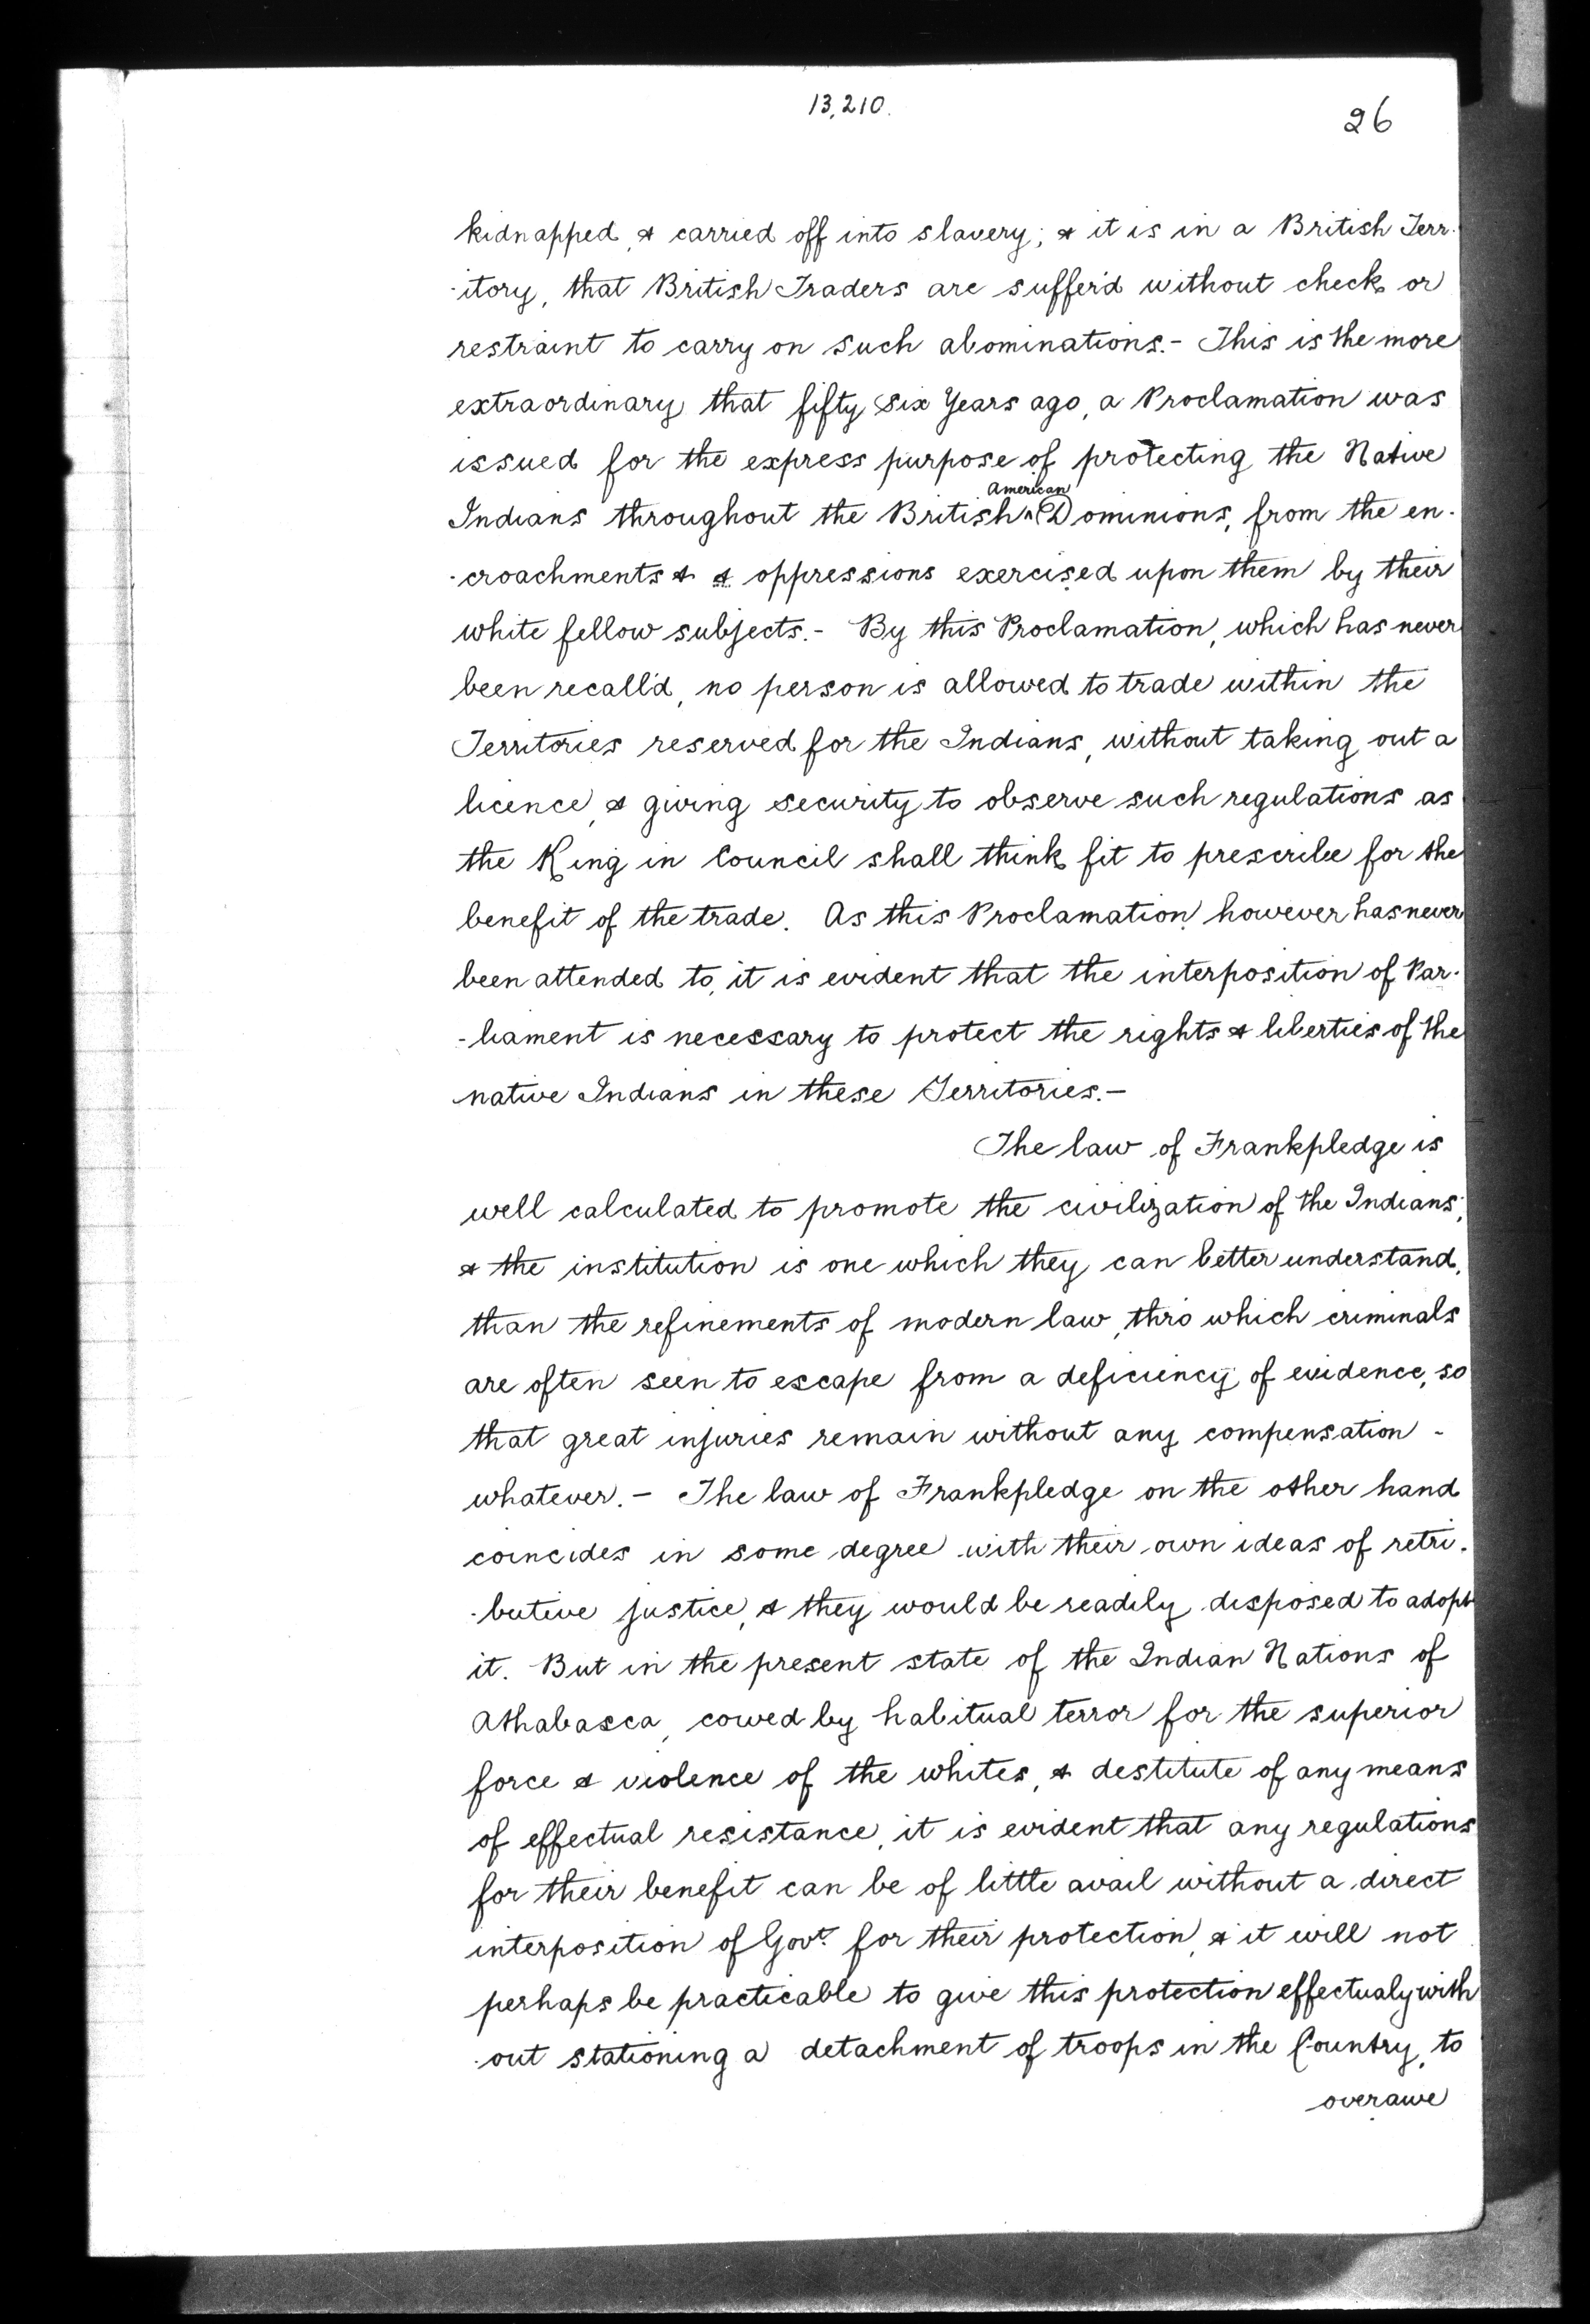 13,210.
26
kidnapped, & carried off into slavery; & it is in a British Terr-
-itory, that British Traders are suffer'd without check or
restraint to carry on such abominations.- This is the more
extraordinary that fifty six Years ago, a Proclamation was
issued for the express purpose of protecting the Native
American
Indians throughout the British ^ Dominions, from the en-
-croachments & & oppressions exercised upon them by their
white fellow subjects.- By this Proclamation, which has never
been recall'd, no person is allowed to trade within the
Territories reserved for the Indians, without taking out a
licence, & giving security to observe such regulations as
the King in Council shall think fit to prescribe for the
benefit of the trade. As this Proclamation however has never
been attended to, it is evident that the interposition of Par-
-liament is necessary to protect the rights & liberties of the
native Indians in these Territories.-
The law of Frankpledge is
well calculated to promote the civilization of the Indians;
& the institution is one which they can better understand,
than the refinements of modern law, thro which criminals
are often seen to escape from a deficiency of evidence, so
that great injuries remain without any compensation -
whatever.- The law of Frankpledge on the other hand
coincides in some degree with their own ideas of retri-
-butive justice, & they would be readily disposed to adopt
it. But in the present state of the Indian Nations of
Athabasca, cowed by habitual terror for the superior
force & violence of the whites, & destitute of any means
of effectual resistance, it is evident that any regulations
for their benefit can be of little avail without a direct
interposition of Govt. for their protection, & it will not
perhaps be practicable to give this protection effectualy with
-out stationing a detachment of troops in the Country, to
overawe